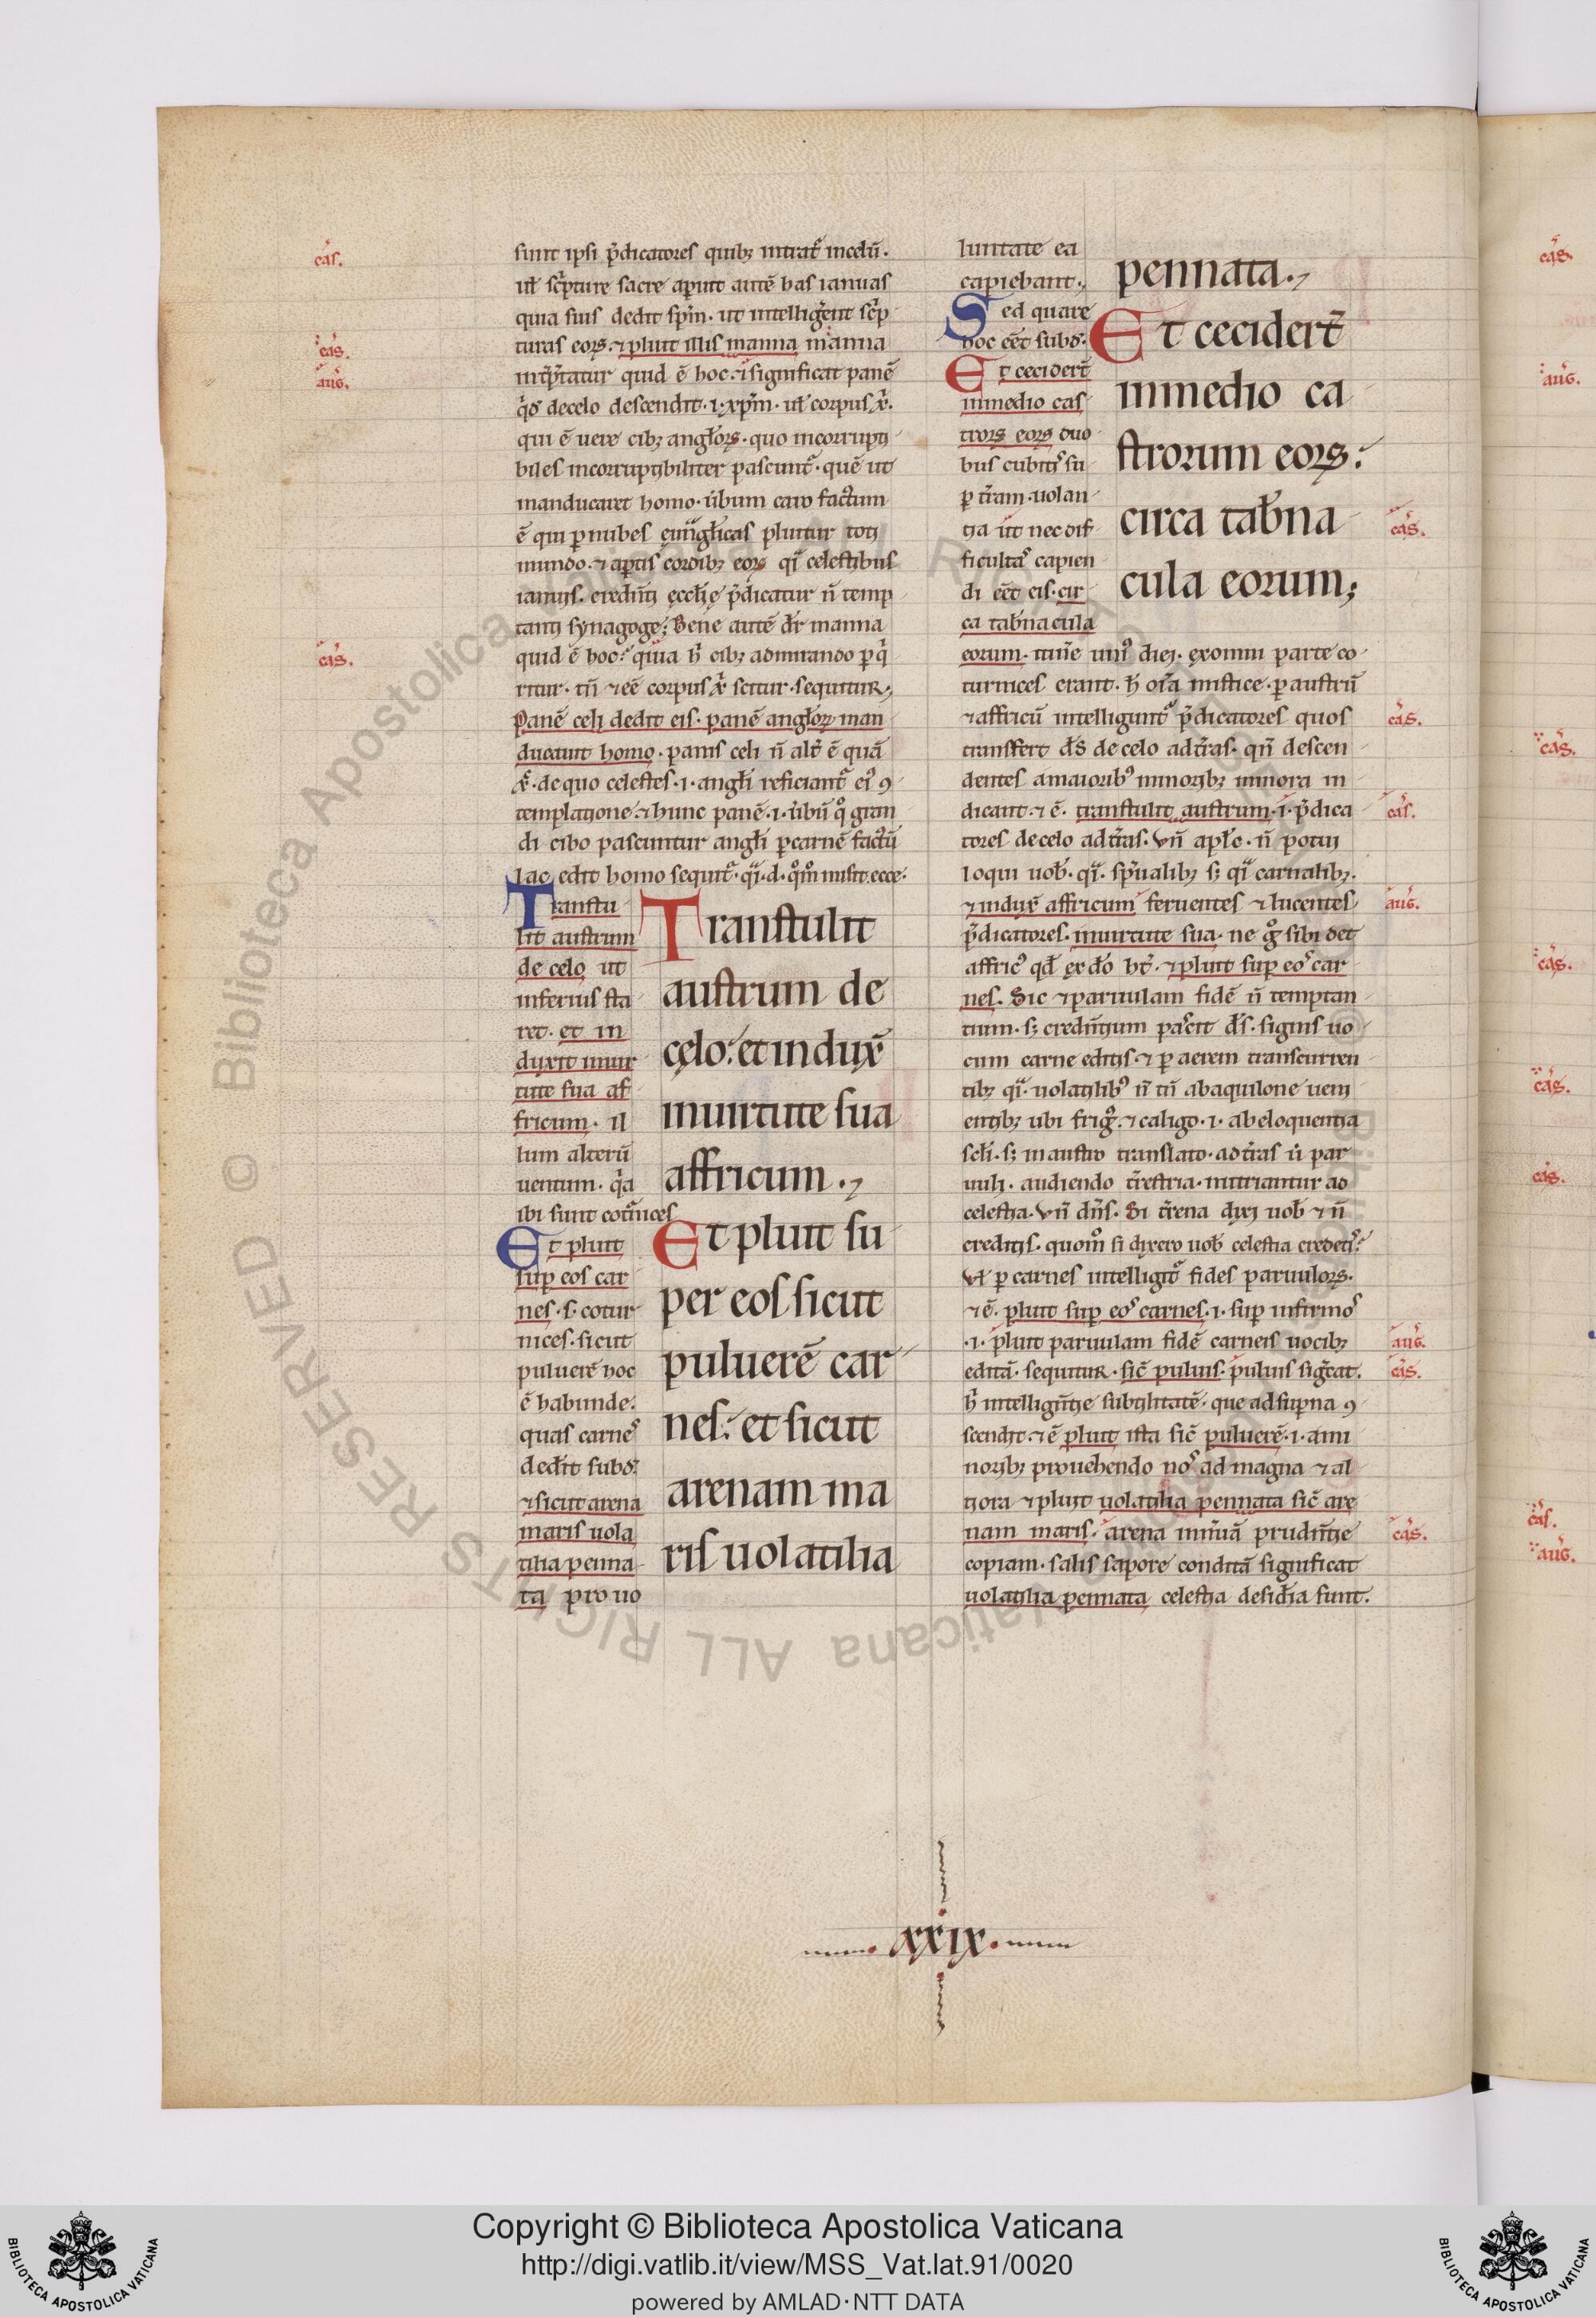 sunt ipsi p̄dicatores quibꝫ intrat᷑ in celū.
ul' sc̄pture sacre aperuit autē has ianuas
quia suis dedit spm̄. ut intellig̃ent sc̄p
turas eoꝝ. ⁊ pluit illis manna manna
int̄p̄tatur quid ē hoc. ⁊ significat panē
q̄d de celo descendit .i. xp̄m. ul' corpus x̄.
qui ē uere cibꝫ angl'oꝝ. quo incorrupti
biles incorruptibiliter pascunt᷑. quē ut
manducaret homo. ūbum caro factum
ē qui p nubes euuā̄gl'icas pluitur toti
mundo. ⁊ aptis cordibꝫ eoꝝ q̄i celestibus
ianuis. credn̄ti ecclīe p̄dicatur n̄ temp
tanti synagoge; Bene autē dr̄ manna
quid ē hoc? quia h̄ cibꝫ admirando p q̄
ritur. tn̄ ⁊ eē corpus x̄ scitur. sequitur;
Panē celi dedit eis. panē angl'oꝝ man
ducauit homo. panis celi n̄ alt̄ ē quā
x̄. de quo celestes .i. angl'i reficiant᷑ ei᷒ ꝯ
templatione. ⁊ hunc panē .i. ūbū q̊ gran
di cibo pascuntur angl'i p carnē factū
lac edit homo sequit᷑. q̄i .d. q̊m̊ misit. ecce.
Transtu
lit austrum
de celo ut
inferius sta
ret. et in
duxit in uir
tute sua af
fricum. il
lum alterū
uentum. q̄a
ibi sunt cot᷑nices
Et pluit
sup eos car
nes. s. cotur
nices. sicut
puluerē hoc
ē habunde.
quas carnes
dedit subd̄.
⁊ sicut arena
maris uola
tilia penna
ta pro uo
Transtulit
austrum de
celo: et indux̄
in uirtute sua
affricum.
Et pluit su
per eos sicut
puluerē car
nes: et sicut
arenam ma
ris uolatilia
luntate ea
capiebant;
Sed quare
hoc eēt subd̄.
Et cecider̄t
in medio cas
troꝝ eoꝝ duo
bus cubitis su
p t̄ram. uolan
tia ut nec dif
ficultas capien
di eēt eis. cir
ca tab̄nacula
pennata.
Et cecider̄t
in medio ca
strorum eoꝝ:
circa tab̄na
cula eorum;
eorum. itine uni᷒ diei. ex omni parte co
turnices erant. h̄ oīa mistice. p austrū
⁊ affricū intelligunt᷑ p̄dicatores quos
transfert d̄s de celo ad t̄ras. qn̄ descen
dentes a maiorib᷒ minoribꝫ minora in
dicant. ⁊ ē. transtulit austrum .i. p̄dica
tores de celo ad t̄ras. vn̄ apl'e. n̄ potui
loqui uob̄. q̄i. sp̄ualibꝫ sꝫ q̄i carnalibꝫ.
⁊ indux̄ affricum feruentes ⁊ lucentes
p̄dicatores. in uirtute sua. ne g̊ sibi det
affric᷒ qd̄ ex do̅ ht̄. ⁊ pluit sup eos car
nes. Sic ⁊ paruulam fidē n̄ temptan
tium. sꝫ credn̄tium pascit d̄s. signis uo
cum carne editis. ⁊ p aerem transcurren
tibꝫ q̄i. uolatilib᷒ n̄ tn̄ ab aquilone ueni
entibꝫ ubi frig᷒. ⁊ caligo .i. ab eloquentia
scl'i. sꝫ in austro translato. ad t̄ras ū par
uuli. audiendo t̄restria. nutriantur ad
celestia. vn̄ dn̄s. Si t̄rena dixi uob̄ ⁊ n̄
creditis. quom̊ si dixero uob̄ celestia credetis?
Vl' p carnes intelligit᷑ fides paruuloꝝ.
⁊ ē. pluit sup eos carnes .i. sup infirmos
.i. pluit paruulam fidē carneis uocibꝫ
editā. sequitur. sic̄ puluis. puluis sig᷑cat.
h̄ intellign̄tie subtilitatē. que ad supna ꝯ
scendit. ⁊ ē pluit ista sic̄ puluerē .i. a mi
noribꝫ prouehendo nos ad magna ⁊ al
tiora ⁊ pluit uolatilia pennata sic̄ are
nam maris. arena innuā prudn̄tie
copiam. salis sapore conditā significat
uolatilia pennata celestia desidia sunt.
cas.
cas.
aug.
cas.
cas.
cas.
cas.
aug.
aug.
cas.
cas.
xxix
cas.
aug.
cas.
cas.
cas.
cas.
cas.
aug.
© Biblioteca Apostolica Vaticana ALL RIGHTS RESERVED
Copyright © Biblioteca Apostolica Vaticana
http://digi.vatlib.it/view/MSS_Vat.lat.91/0020
powered by AMLAD·NTT DATA
BIBLIOTECA APOSTOLICA VATICANA
BIBLIOTECA APOSTOLICA VATICANA